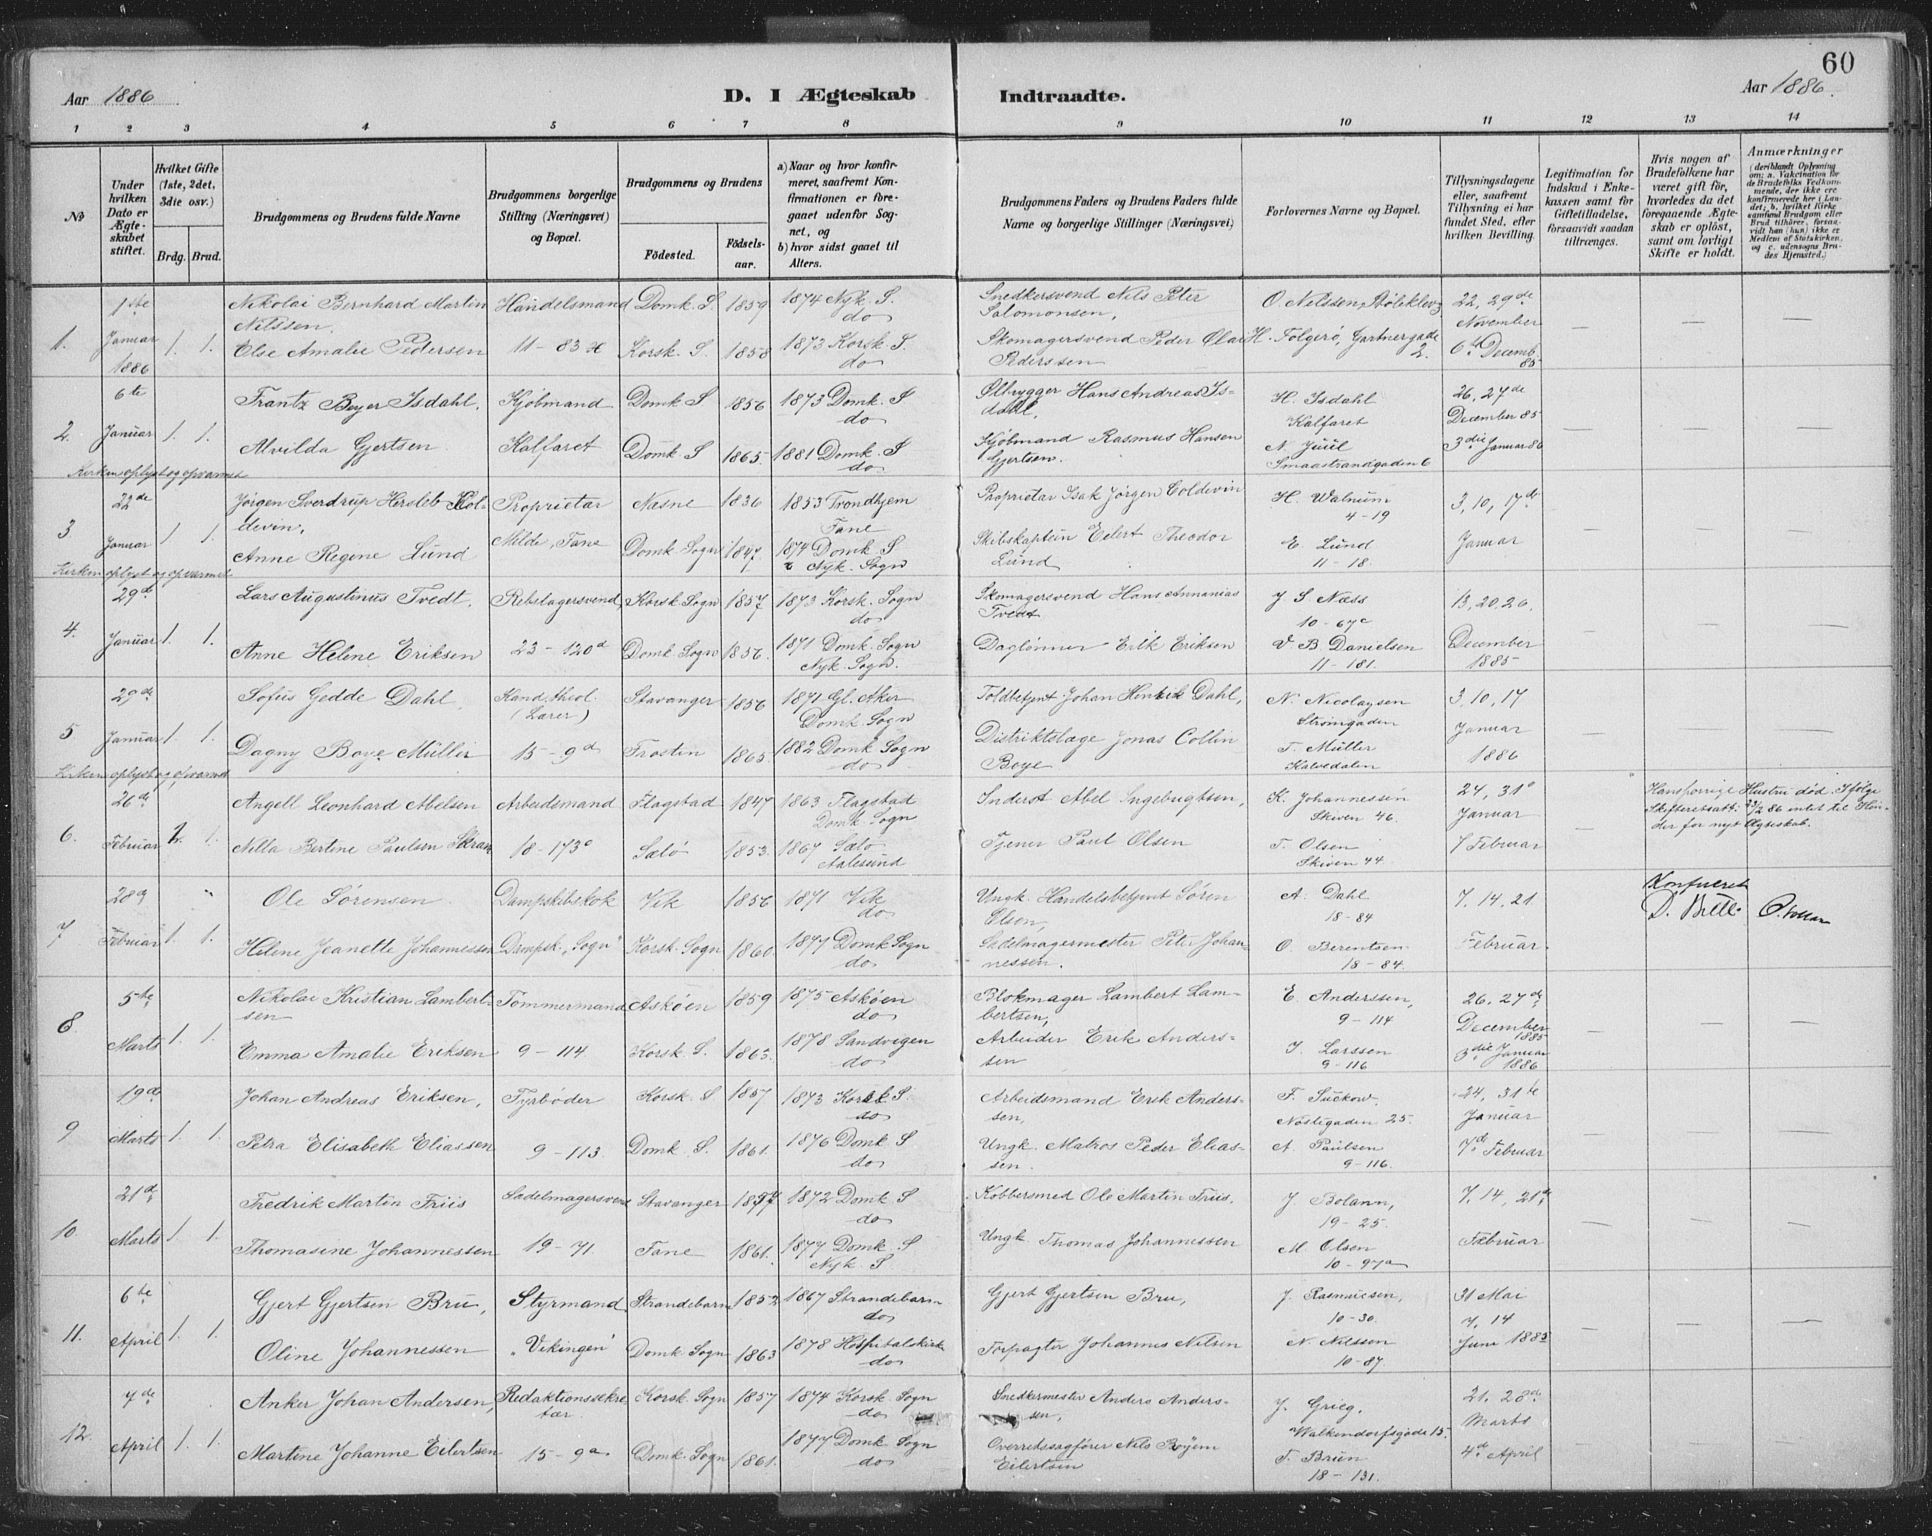 60
Aar 1886
D. I Ægteskab Indtraadte.
Aar 1886.
1 2 3 4 5 6 7 8 9 10 11 12 13 14
№
Under hvilken Dato er Ægteskabet stiftet.
Hvilket Gifte (1ste, 2det, 3die osv.)
Brdg. Brud.
Brudgommens og Brudens fulde Navne
Brudgommens borgerlige Stilling (Næringsvei) og Bopæl.
Brudgommens og Brudens
Födested.
Födsels-aar.
a) Naar og hvor konfirmeret, saafremt Konfirmationen er foregaaet udenfor Sognet, og
b) hvor sidst gaaet til Alters.
Brudgommens Faders og Brudens Faders fulde Navne og borgerlige Stillinger (Næringsvei)
Forlovernes Navne og Bopæl.
Tillysningsdagene eller, saafremt Tillysning ei har fundet Sted, efter hvilken Bevilling.
Legitimation for Indskud i Enkekassen samt for Giftetilladelse, forsaavidt saadan tiltrænges.
Hvis nogen af Brudefolkene har været gift för, hvorledes da det foregaaende Ægteskab er oplöst, samt om lovligt Skifte er holdt.
Anmærkninger
(deriblandt Oplysning om: a. Vakcination for de Brudefolks Vedkommende, der ikke ere konfirmerede her i Landet; b. hvilket Kirkesamfund Brudgom eller Brud tilhører, forsaavidt han (hun) ikke er Medlem af Statskirken, og c. udensogns Brudes Hjemsted.)
1. 1ste Januar 1886 1. 1.
Nikolai Bernhard Martin Nilssen. Handelsmand Domk. S. 1859 1874 Nyk. S. do Snedkersvend Nils Peter Salomonsen, O Nilssen, 22, 29de November
Else Amalie Pedersen 11-83 Korsk. S. 1858 1873 Korsk. S. do Skomagersvend Peder Olai Pederssen H. Folgerö, Gartnergade 2. 6te Decemb. 85
2. 6te Januar 1. 1.
Frantz Beyer Isdahl. Kjöbmand Domk S 1856 1873 Domk. S do Ölbrygger Hans Andreas Isdahl, H. Isdahl Kalfaret 26, 27de December 85
Alvilda Gjertsen Kalfaret Domk S 1865. 1881 Domk. S do Kjöbmand Rasmus Hansen Gjertsen. N. Juul Smaastrandgaden 6 3die Januar 86
Kirken oplyst og opvarmet
3 22de Januar 1 1.
Jørgen Sverdrup Hersleb Coldevin, Proprietær Næsne 1836 1853 Trondhjem Fane Proprietær Isak Jørgen Coldevin H. Walnum 4-19 3, 10, 17de
Anne Regine Lund Milde, Fane Domk. Sogn 1847 1874 Domk. S Nyk. Sogn Skibskaptein Eilert Theodor Lund E. Lund 11-18. Januar
Kirken oplyst og opvarmet
4. 29de Januar 1. 1.
Lars Augustinus Tvedt. Rebslagersvend Korsk Sogn 1857 1873 Korsk. Sogn do Skomagersvend Hans Annanias Tvedt J. S. Næss 10-67c 13, 20, 26.
Anne Helene Eriksen 23-120d Domk Sogn 1856. 1871 Domk. Sogn Nyk. Sogn. Daglönner Erik Eriksen V B Danielsen 11-181. December 1885
5 29de Januar 1 1.
Sofus Gedde Dahl, Kand. theol. (Lærer) Stavanger 1856 1871 Gl. Aker Domk. Sogn Toldbetjnt. Johan Henrik Dahl, N. Nicolaysen Strömgaden 3, 10, 17
Dagny Boye Müller 15-9d Frosten 1863. 1882 Domk Sogn do Distriktslæge Jonas Collin Boye T. Müller Kalvedalen Januar 1886
Kirken oplyst og opvarmet
6. 26de Februar 2. 1.
Angell Leonhard Abelsen Arbeidsmand Flagstad 1847 1863 Flagstad Domk Sogn Inderst Abel Ingebrigtsen, K. Johannessen Skiven 46. 24, 31 Januar Hans forrige Hustru død. Ifølge Skifteretsatt. 23/2 86 intet til Hinder for nyt Ægteskab.
Nilla Bertine Paulsen 18-173 Sælö 1853. 1867 Sælö Aalesund Tjener Paul Olsen T. Olsen Skiven 44. 7 Februar
7 28de Februar 1. 1.
Ole Sörensen Dampskibskok Vik 1856 1871 Vik do Ungk. Handelsbetjent Sören Olsen, A. Dahl 18-84 7. 14. 21 Konfereret
Helene Jeanette Johannessen Dampsk. "Sogn" Korsk. Sogn 1860 1877 Domk Sogn do Sadelmagermester Peter Johannessen. O Berentsen 18-84. Februar
8. 5te Marts 1. 1.
Nikolai Kristian Lambertsen Tömmermand Askøen 1859 1875 Askøen do Blokmager Lambert Lambertsen, E. Anderssen, 9-114 26, 27de December 1885
Emma Amalie Eriksen 9-114 Korsk. S. 1863. 1878 Sandvigen do Arbeider Erik Anderssen J. Larssen 9-116 3die Januar 1886
9 19de Marts 1. 1.
Johan Andreas Eriksen, Fyrböder Korsk. S 1857 1873 Korsk S. do Arbeidsmand Erik Anderssen, F. Suckow. Nöstegaden 25. 24, 31te Januar
Petra Elisabeth Eliassen 9-113. Domk. S. 1861. 1876 Domk S do Ungk. Matros Peder Eliassen. A. Paulsen 9-116. 7de Februar
10. 21de Marts 1 1.
Fredrik Martin Friis Sadelmagersvend Stavanger 1857 1872 Domk. S do Kobbersmed Ole Martin Friis. J Bolann, 19-25. 7, 14, 21de
Thomasine Johannessen 19-71 Fane 1861. 1877 Domk. S Nyk. S Ungk Thomas Johannessen M. Olsen 10-97a Februar
11. 6te April 1. 1.
Gjert Gjertsen Bru, Styrmand Strandebarm 1852 1867 Strandebarm do Gjert Gjertsen Bru, J. Rasmussen, 10-30. 31 Mai 7, 14
Oline Johannessen "Vikingen" Domk Sogn 1863 1878 Hospitalskirk do Forpagter Johannes Nilsen N. Nilssen 10-87. Juni 1885
12. 7de April 1. 1.
Anker Johan Andersen, Redaktionssekretær Korsk. Sogn 1857 1874 Korsk. Sogn do Snedkermester Anders Anderssen, J. Grieg. Walkendorfsgade 15. 21, 28de Marts
Martine Johanne Eilertsen 15-9a Domk. Sogn 1861. 1877 Domk Sogn do Overretssagförer Nils Eilertsen T. Bruun 18-131. 4de April